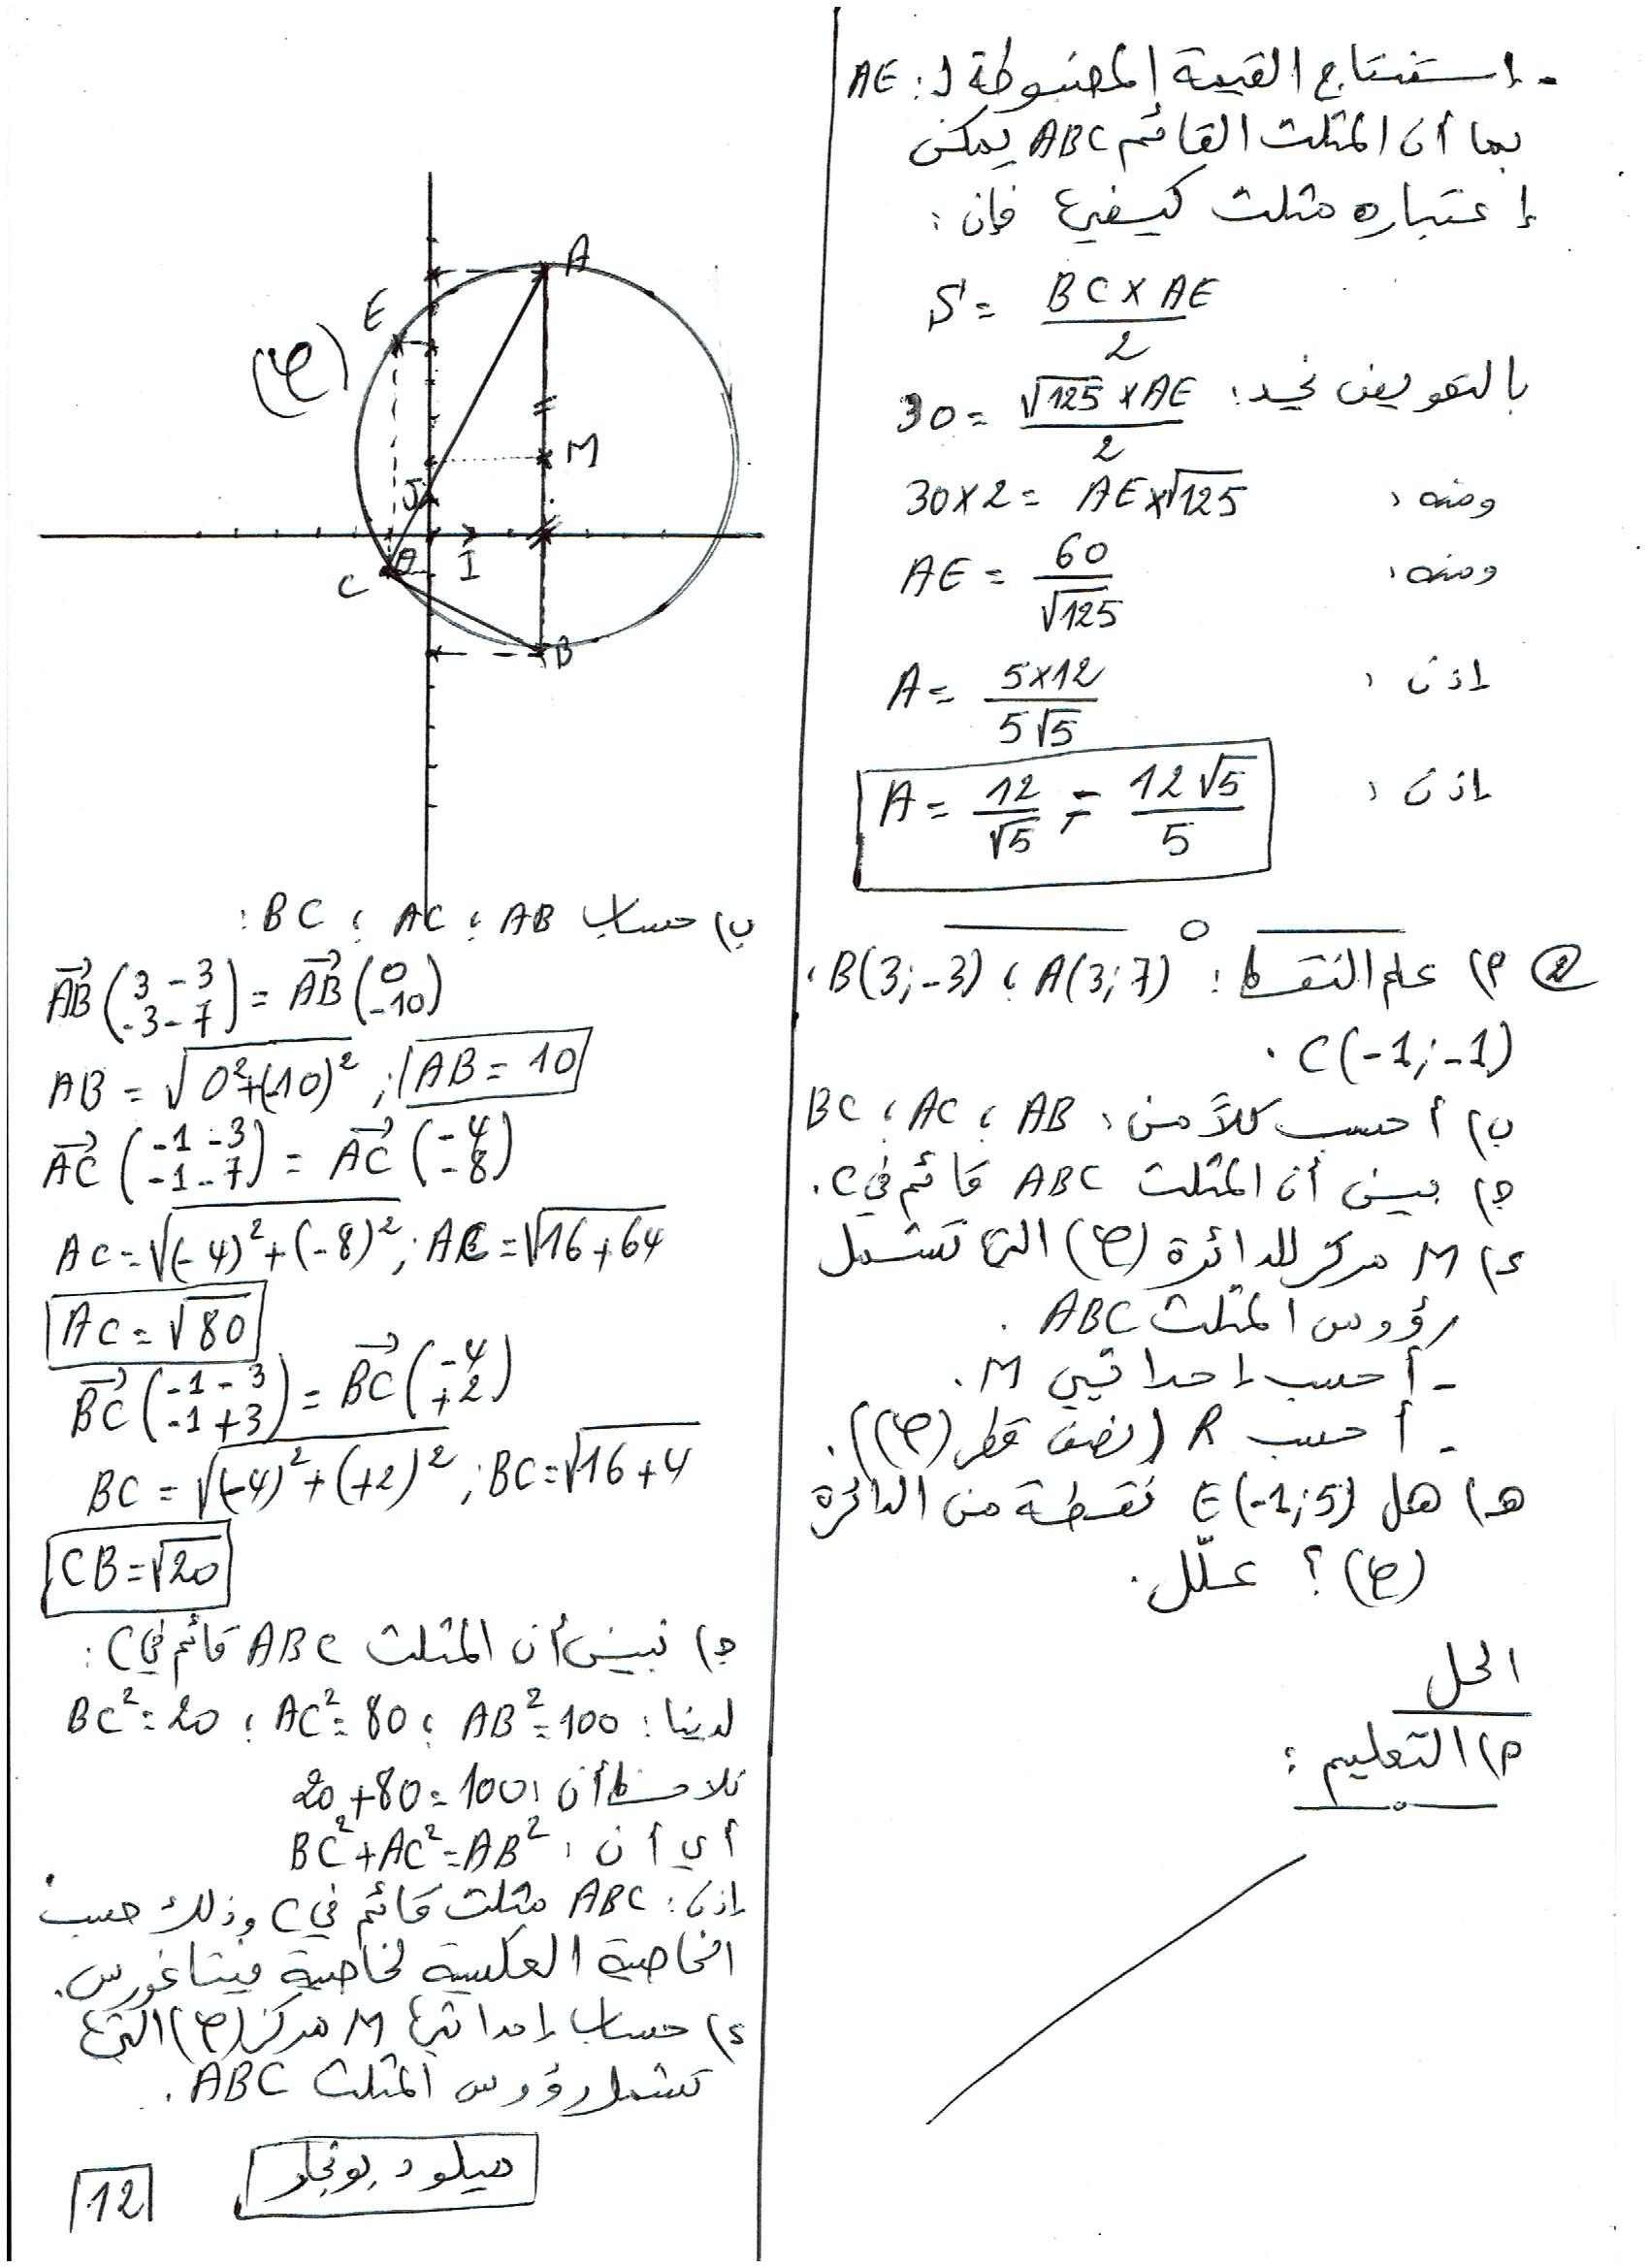 - إستنتاج القيمة المضبوطة لـ: AE
بما أن المثلث القائم ABC يمكن
إعتباره مثلث كيفي فإن:
S = (BC × AE)/2
بالتعويض نجد: 30 = (√125 × AE)/2
ومنه: 30×2 = AE×√125
ومنه: AE = 60/√125
إذن: A = (5×12)/(5√5)
إذن: A = 12/√5 = 12√5/5
② م) علم النقط: A(3;7) ، B(3;-3) ،
C(-1;-1) .
ب) أحسب كلاً من: AB ، AC ، BC
ج) بين أن المثلث ABC قائم في C.
د) M مركز للدائرة (φ) التي تشمل
رؤوس المثلث ABC .
- أحسب إحداثيي M.
- أحسب R (نصف قطر (φ)).
هـ) هل E(-1;5) نقطة من الدائرة
(φ) ؟ علّل.
الحل
م) التعليم :
A
E
(φ)
M
J
O
I
C
B
ب) حساب AB ، AC ، BC :
AB⃗ (3-3 ; -3-7) = AB⃗ (0 ; -10)
AB = √(0²+(-10)²) ; AB = 10
AC⃗ (-1-3 ; -1-7) = AC⃗ (-4 ; -8)
AC = √((-4)²+(-8)²) ; AC = √(16+64)
AC = √80
BC⃗ (-1-3 ; -1+3) = BC⃗ (-4 ; +2)
BC = √((-4)²+(+2)²) ; BC = √(16+4)
CB = √20
ج) نبين أن المثلث ABC قائم في C :
لدينا: AB²=100 ، AC²=80 ، BC²=20
نلاحظ أن: 20+80=100
أي أن: BC²+AC²=AB²
إذن: ABC مثلث قائم في C وذلك حسب
الخاصية العكسية لخاصية فيتاغورس.
د) حساب إحداثيي M مركز (φ) التي
تشمل رؤوس المثلث ABC .
ميلود بونجار
12